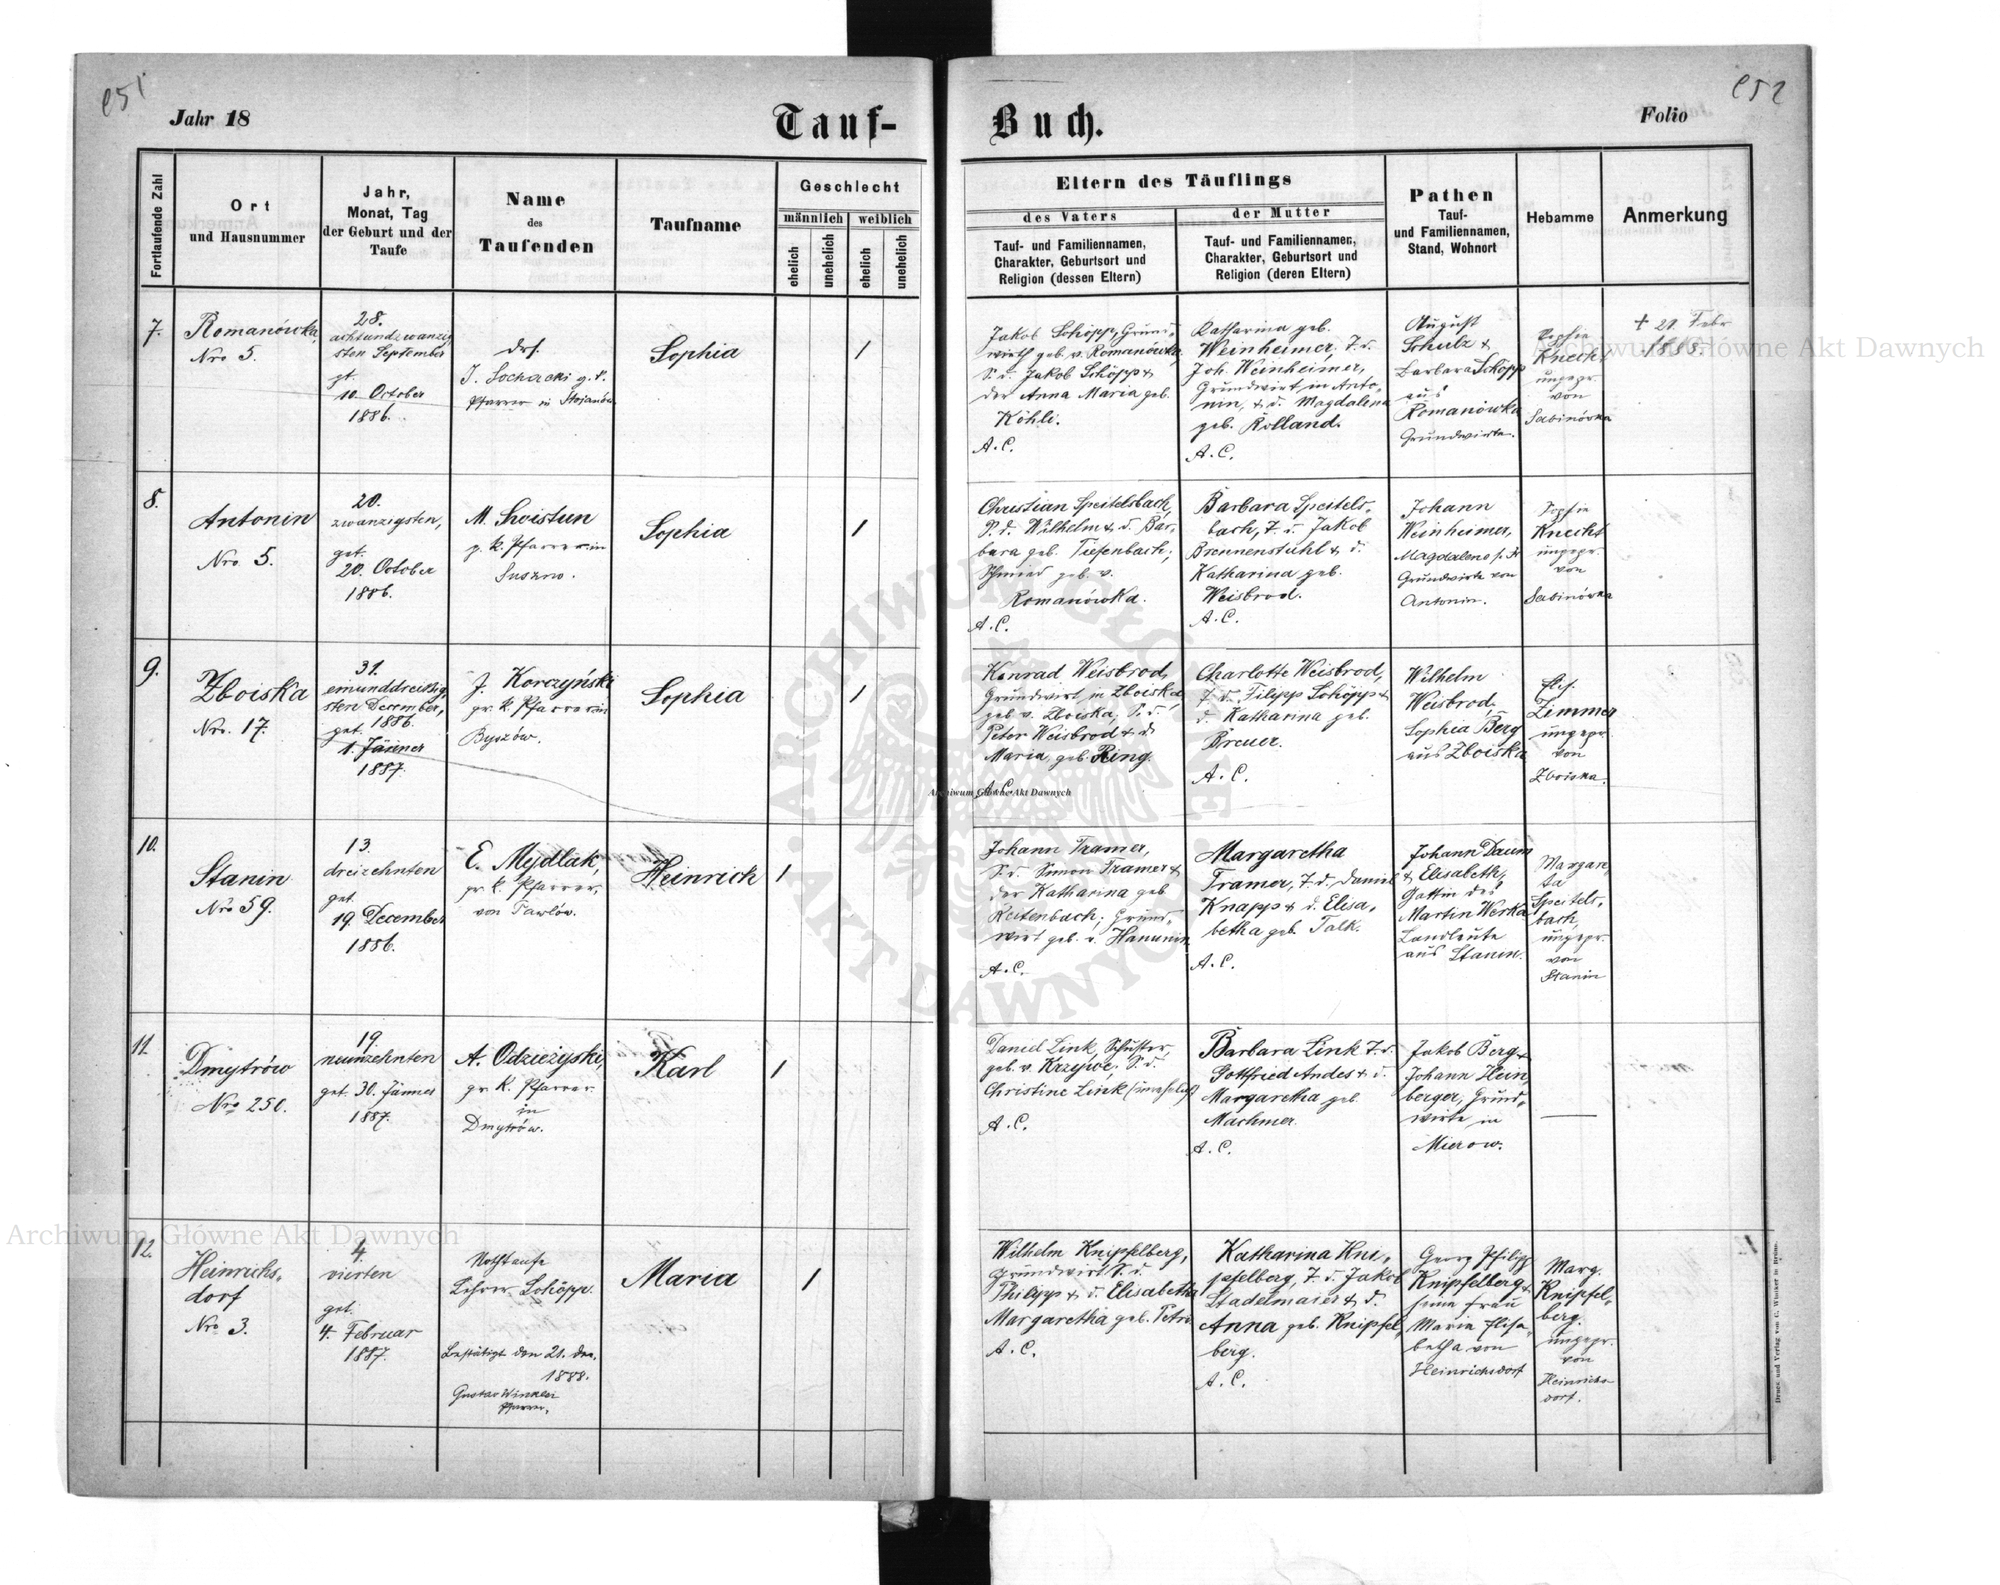 Jahr 18
Tauf-
Buch.
Folio
Fortlaufende Zahl
Ort
und Hausnummer
Jahr,
Monat, Tag
der Geburt und der
Taufe
Name
des
Taufenden
Taufname
Geschlecht
männlich
weiblich
ehelich
unehelich
ehelich
unehelich
Eltern des Täuflings
des Vaters
der Mutter
Tauf- und Familiennamen,
Charakter, Geburtsort und
Religion (dessen Eltern)
Tauf- und Familiennamen,
Charakter, Geburtsort und
Religion (deren Eltern)
Pathen
Tauf-
und Familiennamen,
Stand, Wohnort
Hebamme
Anmerkung
7.
Romanówka,
Nro 5.
28.
achtundzwanzig
sten September
gt.
10. October
1886.
J. Sochacki g. k.
Pfarrer in Stojanów
Sophia
Jakob Schöpp, Grund-
wirth geb. v. Romanówka,
S. d. Jakob Schöpp &
der Anna Maria geb.
Köhli.
A. C.
Katharina geb.
Weinheimer, T. d.
Joh. Weinheimer,
Grundwirt in Anto-
nin, & d. Magdalena
geb. Rolland.
A. C.
August
Schulz &
Barbara Schöpp
aus
Romanówka
Grundwirte.
Sophia
Knecht
ungepr.
von
Sabinówka
+ 21. Febr
1888.
8.
Antonin
Nro. 5.
20.
zwanzigsten,
get.
20. October
1886.
M. Swistun
g. k. Pfarrer in
Suszno.
Sophia
Christian Speitelsbach,
S. d. Wilhelm & d. Bar-
bara geb. Tiefenbach;
Schmied geb. v.
Romanówka.
A. C.
Barbara Speitels-
bach, T. d. Jakob
Brennenstuhl & d.
Katharina geb.
Weisbrod.
A. C.
Johann
Weinheimer,
Magdalena s. Fr
Grundwirte von
Antonin.
Sophia
Knecht
ungepr.
von
Sabinówka
9.
Zboiska
Nro. 17.
31.
einunddreißig-
sten December,
1886.
get.
1. Jänner
1887.
J. Korczyński
gr. k. Pfarrer in
Byszów.
Sophia
Konrad Weisbrod,
Grundwirt in Zboiska
geb. v. Zboiska, S. d.
Peter Weisbrod & d
Maria, geb. Ring.
A. C.
Charlotte Weisbrod,
T. d. Filipp Schöpp &
d. Katharina geb.
Breuer.
A. C.
Wilhelm
Weisbrod,
Sophia Berg
aus Zboiska
Elis.
Zimmer
ungepr.
von
Zboiska.
10.
Stanin
Nro 59.
13.
dreizehnten
get.
19. December
1886.
E. Mydlak,
gr. k. Pfarrer,
von Pawlów.
Heinrich
Johann Tramer,
S. d. Simon Tramer &
der Katharina geb
Reitenbach; Grund-
wirt geb. v. Hanunin
A. C.
Margaretha
Tramer, T. d. Daniel
Knapp & d. Elisa-
betha geb. Falk.
A. C.
Johann Daum
& Elisabeth,
Gattin des
Martin Werka
Landleute
aus Stanin.
Margare-
ta
Speitels-
bach,
ungepr.
von
Stanin
11.
Dmytrów
Nro 250.
19.
neunzehnten
get. 30. Jänner
1887.
A. Odzieżyski,
gr. k. Pfarrer
in
Dmytrów.
Karl
Daniel Link, Schuster,
geb. v. Krzywe; S. d.
Christine Link (unehelich)
A. C.
Barbara Link T. d.
Gottfried Andes & d.
Margaretha geb.
Machmer.
A. C.
Jakob Berg &
Johann Hein-
berger, Grund-
wirte in
Mierow.
12.
Heinrichs-
dorf
Nro 3.
4
vierten
get.
4. Februar
1887.
Nothtaufe
Lehrer Schöpp.
Bestätigt den 21. Dec.
1888.
Gustav Winkler
Pfarrer.
Maria
Wilhelm Knipfelberg,
Grundwirt S. d.
Philipp & d. Elisabetha
Margaretha geb. Petri
A. C.
Katharina Kni-
pfelberg, T. d. Jakob
Stadelmaier & d.
Anna geb. Knipfel-
berg.
A. C.
Georg Philipp
Knipfelberg &
seine Frau
Maria Elisa-
betha von
Heinrichsdorf
Marg.
Knipfel-
berg.
ungepr.
von
Heinrichs-
dorf.
Druck und Verlag von C. Winiker in Brünn.
Archiwum Główne Akt Dawnych
Archiwum Główne Akt Dawnych
Archiwum Główne Akt Dawnych
ARCHIWUM GŁÓWNE
AKT DAWNYCH